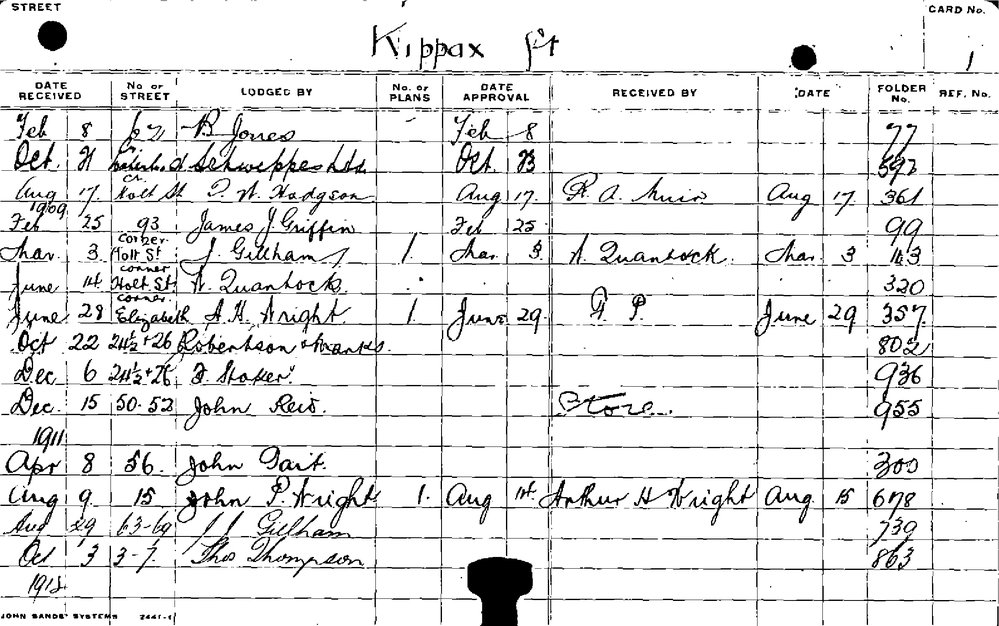 STREET
CARD No.
Kippax St
1
DATE RECEIVED No OF STREET LODGED BY No. OF PLANS DATE APPROVAL RECEIVED BY DATE FOLDER No. REF. No.
Feb 8 67 B Jones Feb 8 77
Oct. 21 Schweppes Ltd. Oct. 23 592
cr.
Aug 17. Holt St W. Hodgson Aug 17. R. A. Muir Aug 17 361
1909.
Feb 25 93 James J Griffin Feb 25 99
corner
Mar. 3 Holt St J. Gillham 1. Mar 3. A. Quantock. Mar. 3 143
corner
June 14 Holt. St. A. Quantock. 320
corner.
June 28 Elizabeth A. H. Wright. 1. June 29. June 29 357.
Oct 22 24½+26 Robertson & Marks. 802
Dec. 6 24½+26 Stoker. 936
Dec. 15 50-52 John Reid. Store. 955
1911
Apr 8 56. John Tait. 300
Aug 9. 15 John P. Wright 1. Aug 14. Arthur H Wright Aug. 15 678
Aug 29 63-69 J J Gillham 739
Oct 3 3-7. Thos Thompson 863
1912
JOHN SANDS' SYSTEMS 2441-1